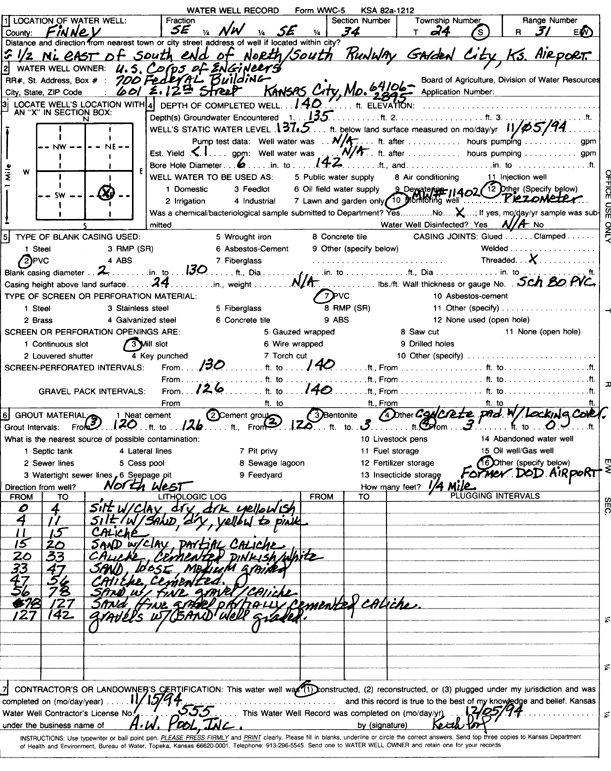 WATER WELL RECORD Form WWC-5 KSA 82a-1212
1 LOCATION OF WATER WELL: Fraction Section Number Township Number Range Number
County: Finney SE ¼ NW ¼ SE ¼ 34 T 24 S R 31 E/W
Distance and direction from nearest town or city street address of well if located within city?
1/2 Mi East of South end of North/South Runway Garden City, Ks. Airport
2 WATER WELL OWNER: U.S. Corps of Engineers
RR#, St. Address, Box # : 700 Federal Building Board of Agriculture, Division of Water Resources
City, State, ZIP Code : 601 E. 12th Street Kansas City, Mo. 64106-2895 Application Number:
3 LOCATE WELL'S LOCATION WITH AN "X" IN SECTION BOX:
N
NW NE
W E
SW SE
S
1 Mile
X
4 DEPTH OF COMPLETED WELL 140 ft. ELEVATION:
Depth(s) Groundwater Encountered 1. 135 ft. 2. ft. 3. ft.
WELL'S STATIC WATER LEVEL 137.5 ft. below land surface measured on mo/day/yr 11/05/94
Pump test data: Well water was N/A ft. after hours pumping gpm
Est. Yield <1 gpm: Well water was N/A ft. after hours pumping gpm
Bore Hole Diameter 6 in. to 142 ft., and in. to ft.
WELL WATER TO BE USED AS: 5 Public water supply 8 Air conditioning 11 Injection well
1 Domestic 3 Feedlot 6 Oil field water supply 9 Dewatering 12 Other (Specify below)
2 Irrigation 4 Industrial 7 Lawn and garden only 10 Monitoring well MW#11402 Piezometer
Was a chemical/bacteriological sample submitted to Department? Yes No X; If yes, mo/day/yr sample was sub-
mitted Water Well Disinfected? Yes N/A No
5 TYPE OF BLANK CASING USED: 5 Wrought iron 8 Concrete tile CASING JOINTS: Glued Clamped
1 Steel 3 RMP (SR) 6 Asbestos-Cement 9 Other (specify below) Welded
2 PVC 4 ABS 7 Fiberglass Threaded X
Blank casing diameter 2 in. to 130 ft., Dia in. to ft., Dia in. to ft.
Casing height above land surface 24 in., weight N/A lbs./ft. Wall thickness or gauge No. Sch 80 PVC.
TYPE OF SCREEN OR PERFORATION MATERIAL: 7 PVC 10 Asbestos-cement
1 Steel 3 Stainless steel 5 Fiberglass 8 RMP (SR) 11 Other (specify)
2 Brass 4 Galvanized steel 6 Concrete tile 9 ABS 12 None used (open hole)
SCREEN OR PERFORATION OPENINGS ARE: 5 Gauzed wrapped 8 Saw cut 11 None (open hole)
1 Continuous slot 3 Mill slot 6 Wire wrapped 9 Drilled holes
2 Louvered shutter 4 Key punched 7 Torch cut 10 Other (specify)
SCREEN-PERFORATED INTERVALS: From 130 ft. to 140 ft., From ft. to ft.
From ft. to ft., From ft. to ft.
GRAVEL PACK INTERVALS: From 126 ft. to 140 ft., From ft. to ft.
From ft. to ft., From ft. to ft.
6 GROUT MATERIAL: 1 Neat cement 2 Cement grout 3 Bentonite 4 Other Concrete pad w/ Locking Cover.
Grout Intervals: From 3 120 ft. to 126 ft., From 2 120 ft. to 3 ft., From 4 3 ft. to 0 ft.
What is the nearest source of possible contamination: 10 Livestock pens 14 Abandoned water well
1 Septic tank 4 Lateral lines 7 Pit privy 11 Fuel storage 15 Oil well/Gas well
2 Sewer lines 5 Cess pool 8 Sewage lagoon 12 Fertilizer storage 16 Other (specify below)
3 Watertight sewer lines 6 Seepage pit 9 Feedyard 13 Insecticide storage Former DOD Airport
Direction from well? North West How many feet? 1/4 Mile
FROM TO LITHOLOGIC LOG FROM TO PLUGGING INTERVALS
0 4 Silt w/clay dry, drk yellowish
4 11 Silt w/SAND, dry, yellow to pink
11 15 CALICHE
15 20 SAND w/clay, partial CALICHE
20 33 CALICHE, Cemented pinkish/white
33 47 SAND, loose, medium grained
47 56 CALICHE, cemented.
56 78 SAND w/ fine gravel/CALICHE
78 127 Sand, fine gravel partially cemented CALICHE.
127 142 gravels w/SAND well graded.
7 CONTRACTOR'S OR LANDOWNER'S CERTIFICATION: This water well was (1) constructed, (2) reconstructed, or (3) plugged under my jurisdiction and was
completed on (mo/day/year) 11/15/94 and this record is true to the best of my knowledge and belief. Kansas
Water Well Contractor's License No. 555 This Water Well Record was completed on (mo/day/yr) 12/05/94
under the business name of A.W. POOL, INC. by (signature)
INSTRUCTIONS: Use typewriter or ball point pen. PLEASE PRESS FIRMLY and PRINT clearly. Please fill in blanks, underline or circle the correct answers. Send top three copies to Kansas Department
of Health and Environment, Bureau of Water, Topeka, Kansas 66620-0001. Telephone: 913-296-5545. Send one to WATER WELL OWNER and retain one for your records.
OFFICE USE ONLY
T
R
E/W
SEC.
¼
¼
¼